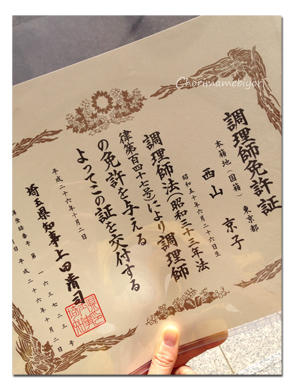 Chorimamebiyori
調理師免許証
本籍地(国籍) 東京都
西山 京子
昭和五十年六月二十六日生
調理師法(昭和三十三年法
律第百四十七号)により調理師
の免許を与える
よってこの証を交付する
平成二十六年十月二日
埼玉県知事 上田清司